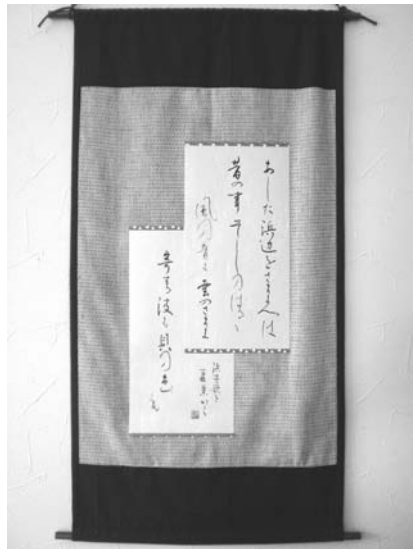 あした浜辺をさまよへは
昔の事そしのはるゝ
風の音よ 雲のさまよ
寄する波も 貝の色
も